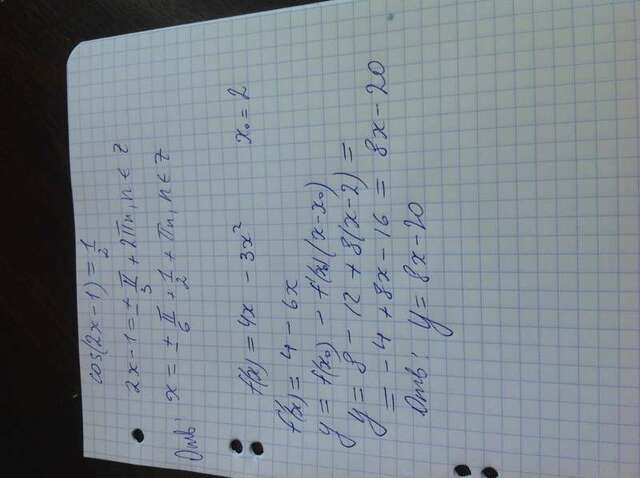 cos(2x-1) = 1/2
2x-1 = ± π/3 + 2πn, n ∈ Z
Отв: x = ± π/6 + 1/2 + πn, n ∈ Z
f(x) = 4x - 3x² x₀ = 2
f'(x) = 4 - 6x
y = f(x₀) - f'(x₀)(x-x₀)
y = 8 - 12 + 8(x-2) =
= -4 + 8x - 16 = 8x - 20
Отв: y = 8x - 20